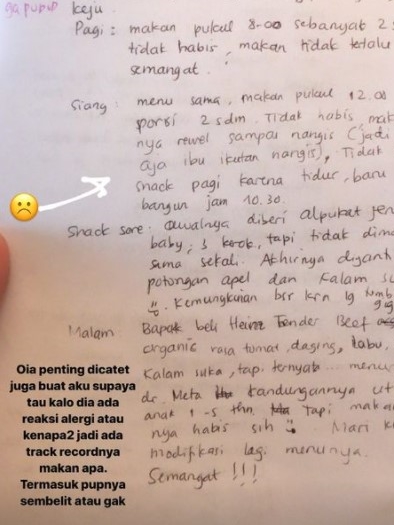 gapupup keju.
Pagi : makan pukul 8.00 sebanyak 2 s
tidak habis, makan tidak terlalu
semangat.
Siang : menu sama, makan pukul 12.00
porsi 2 sdm. Tidak habis, mak
nya rewel sampai nangis (jadi
aja ibu ikutan nangis), Tidak
snack pagi karena tidur, baru
bangun jam 10.30.
Snack sore : awalnya diberi alpuket
baby, 3 tapi tidak dima
sama sekali. Akhirnya diganti
potongan apel dan Kalam su
Kemungkinan bsr krn lg tumb
gigi
Malam Bapak beli Heinz Tender Beef
organic rasa tomat, daging, labu,
Kalam suka, tapi ternyata... menur
dr. Meta kandungannya ut
anak 1-5 thn. Tapi maka
nya habis sih Mari k
modifikasi lagi menunya.
Semangat !!!
Oia penting dicatet
juga buat aku supaya
tau kalo dia ada
reaksi alergi atau
kenapa2 jadi ada
track recordnya
makan apa.
Termasuk pupnya
sembelit atau gak